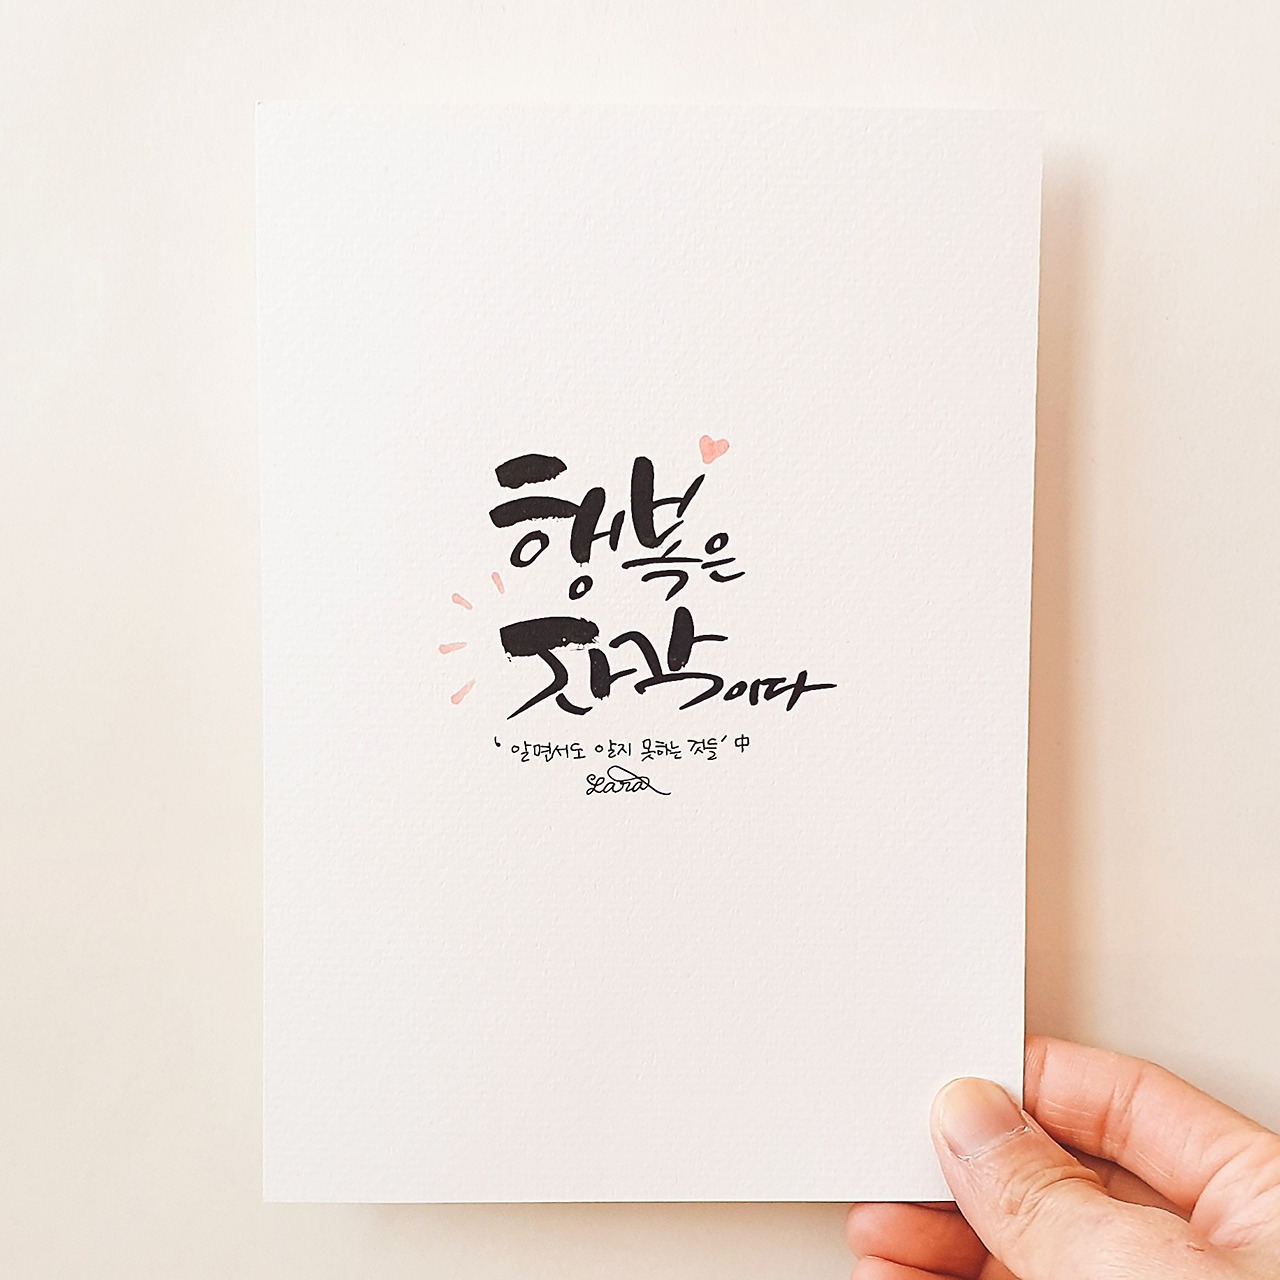 행복은
자각이다
‘알면서도 알지 못하는 것들’ 中
Lara